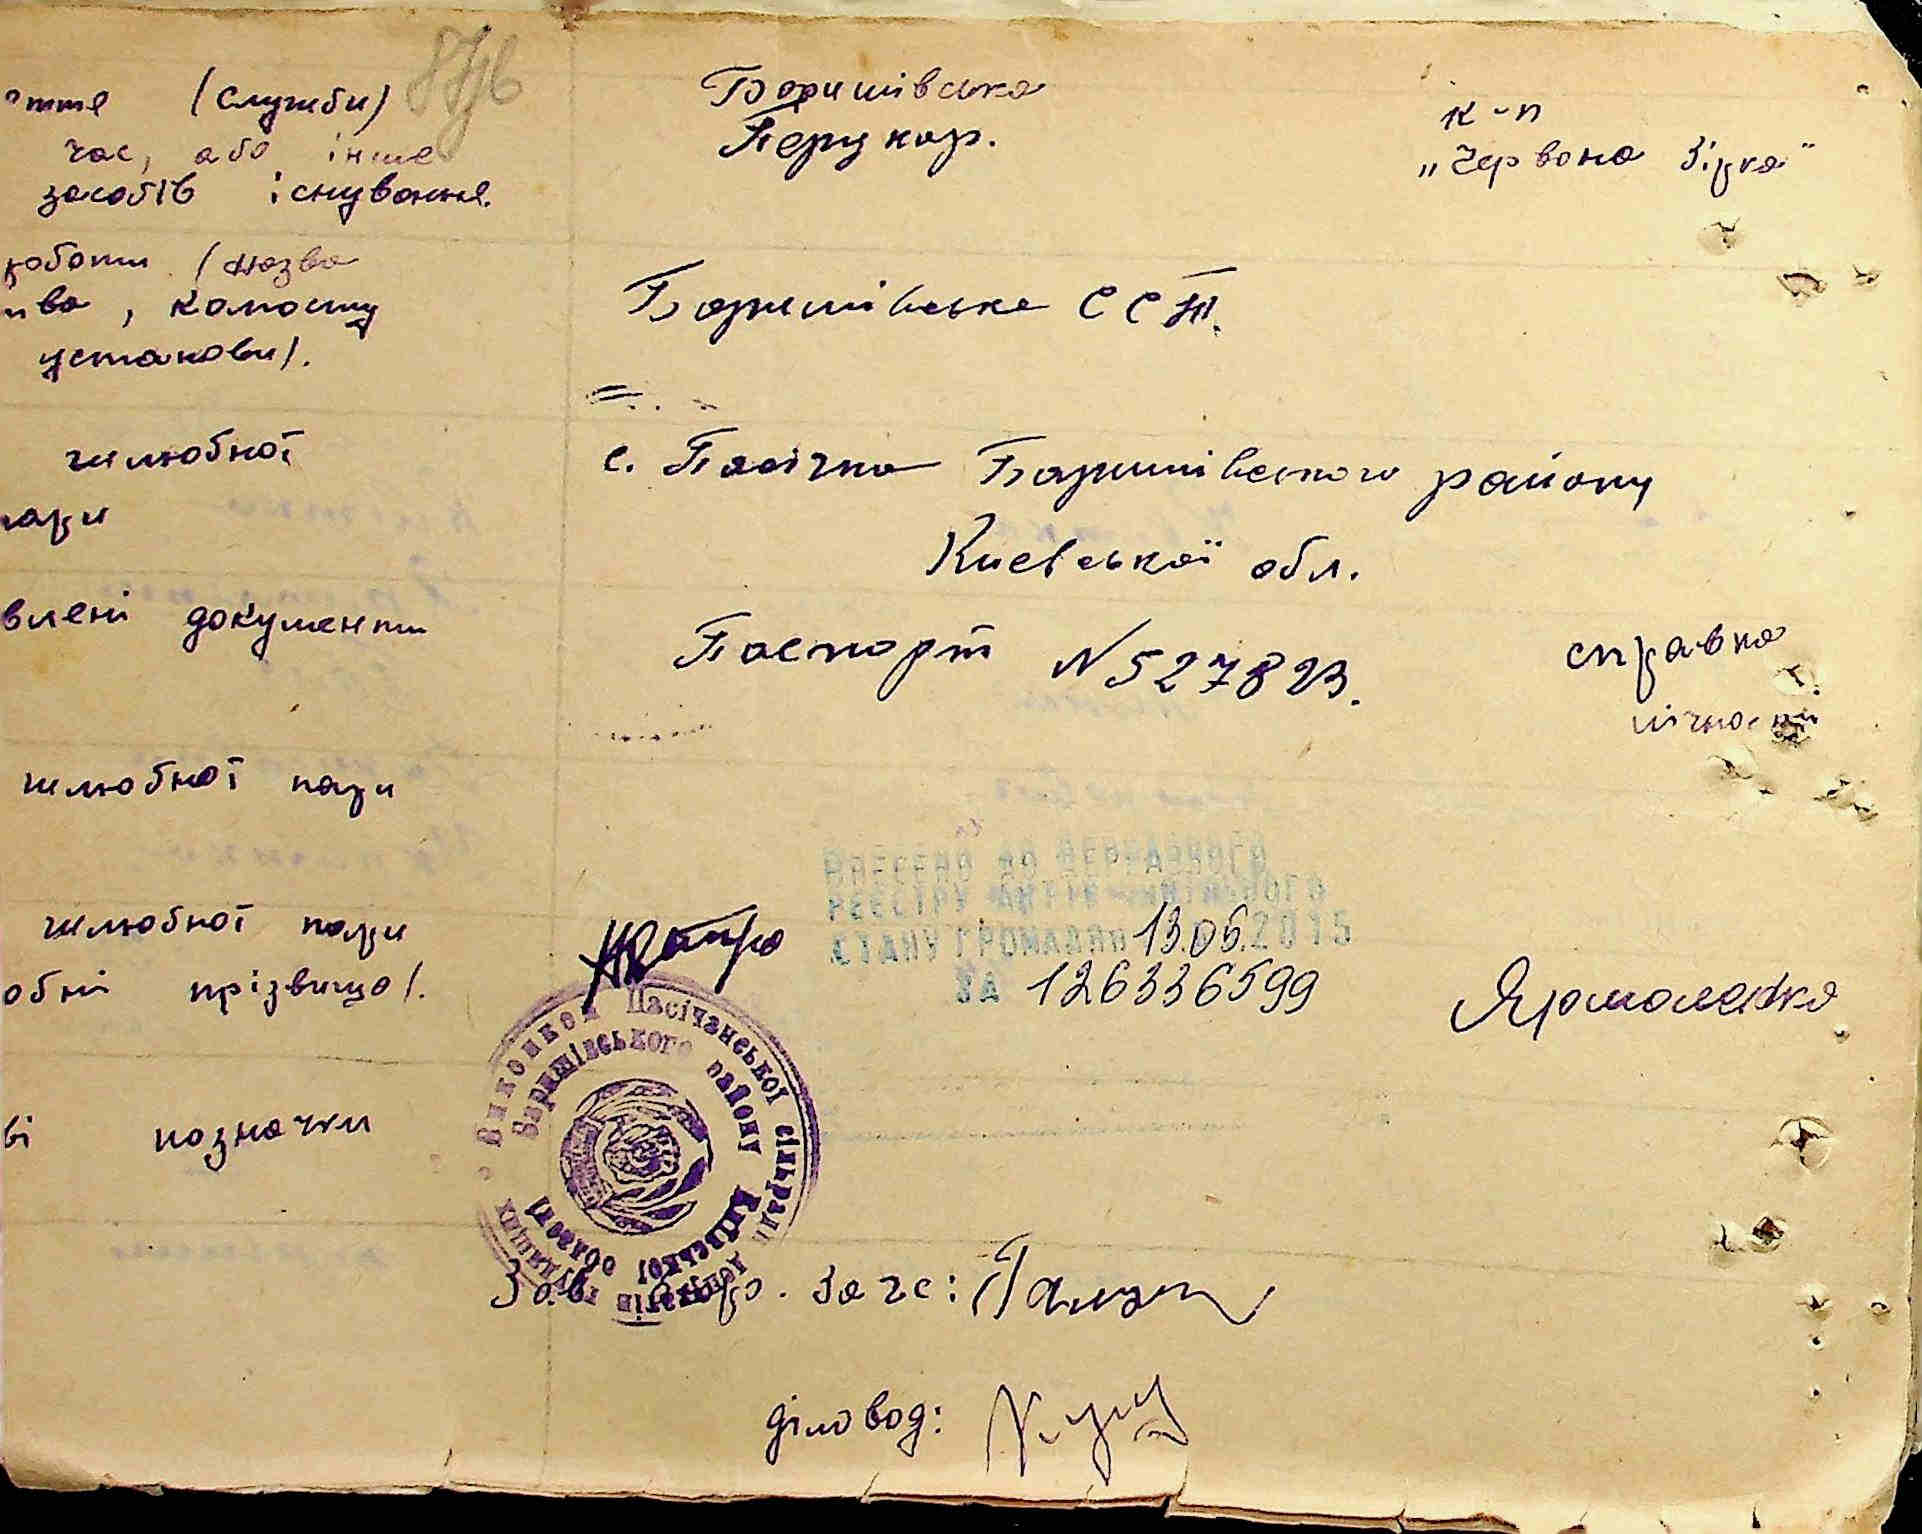 яття (служби) Баришівська к-п
час, або інше Перукар. „Червона Зірка"
засобів існування.
роботи (назва
ива, колгоспу Баришівське ССТ.
установи).
шлюбної с. Пасічна Баришівського району
пари Київської обл.
влені документи Паспорт N 527823. справка
лічности
шлюбної пари
ВНЕСЕНО ДО ДЕРЖАВНОГО
РЕЄСТРУ АКТІВ ЦИВІЛЬНОГО
шлюбної пари СТАНУ ГРОМАДЯН 13.06.2015
обні прізвища). ЗА 126336599 Ярмоленко
Виконком Пасічанської сільради депутатів трудящих
Баришівського району Київської області
ві позначки
Зав. бюро. Загс:
діловод: